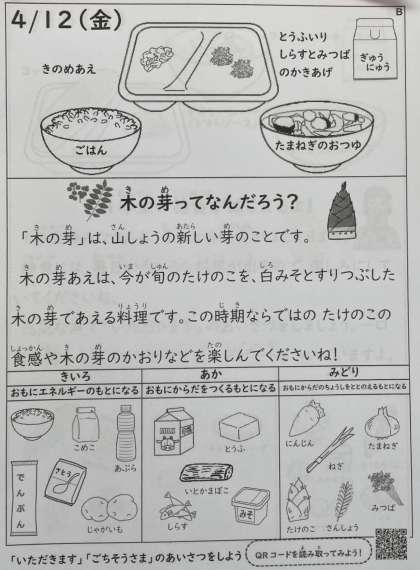 4/12(金)
B
きのめあえ
とうふいり
しらすとみつば
のかきあげ
ぎゅう
にゅう
ごはん
たまねぎのおつゆ
木の芽ってなんだろう？
「木の芽」は、山しょうの新しい芽のことです。
木の芽あえは、今が旬のたけのこを、白みそとすりつぶした
木の芽であえる料理です。この時期ならではの たけのこの
食感や木の芽のかおりなどを楽しんでくださいね！
きいろ
あか
みどり
おもにエネルギーのもとになる
おもにからだをつくるもとになる
おもにからだのちょうしをととのえるもとになる
こめこ
あぶら
でんぷん
さとう
じゃがいも
とうふ
いとかまぼこ
しらす
みそ
にんじん
たまねぎ
ねぎ
みつば
たけのこ
さんしょう
「いただきます」「ごちそうさま」のあいさつをしよう
QRコードを読み取ってみよう！